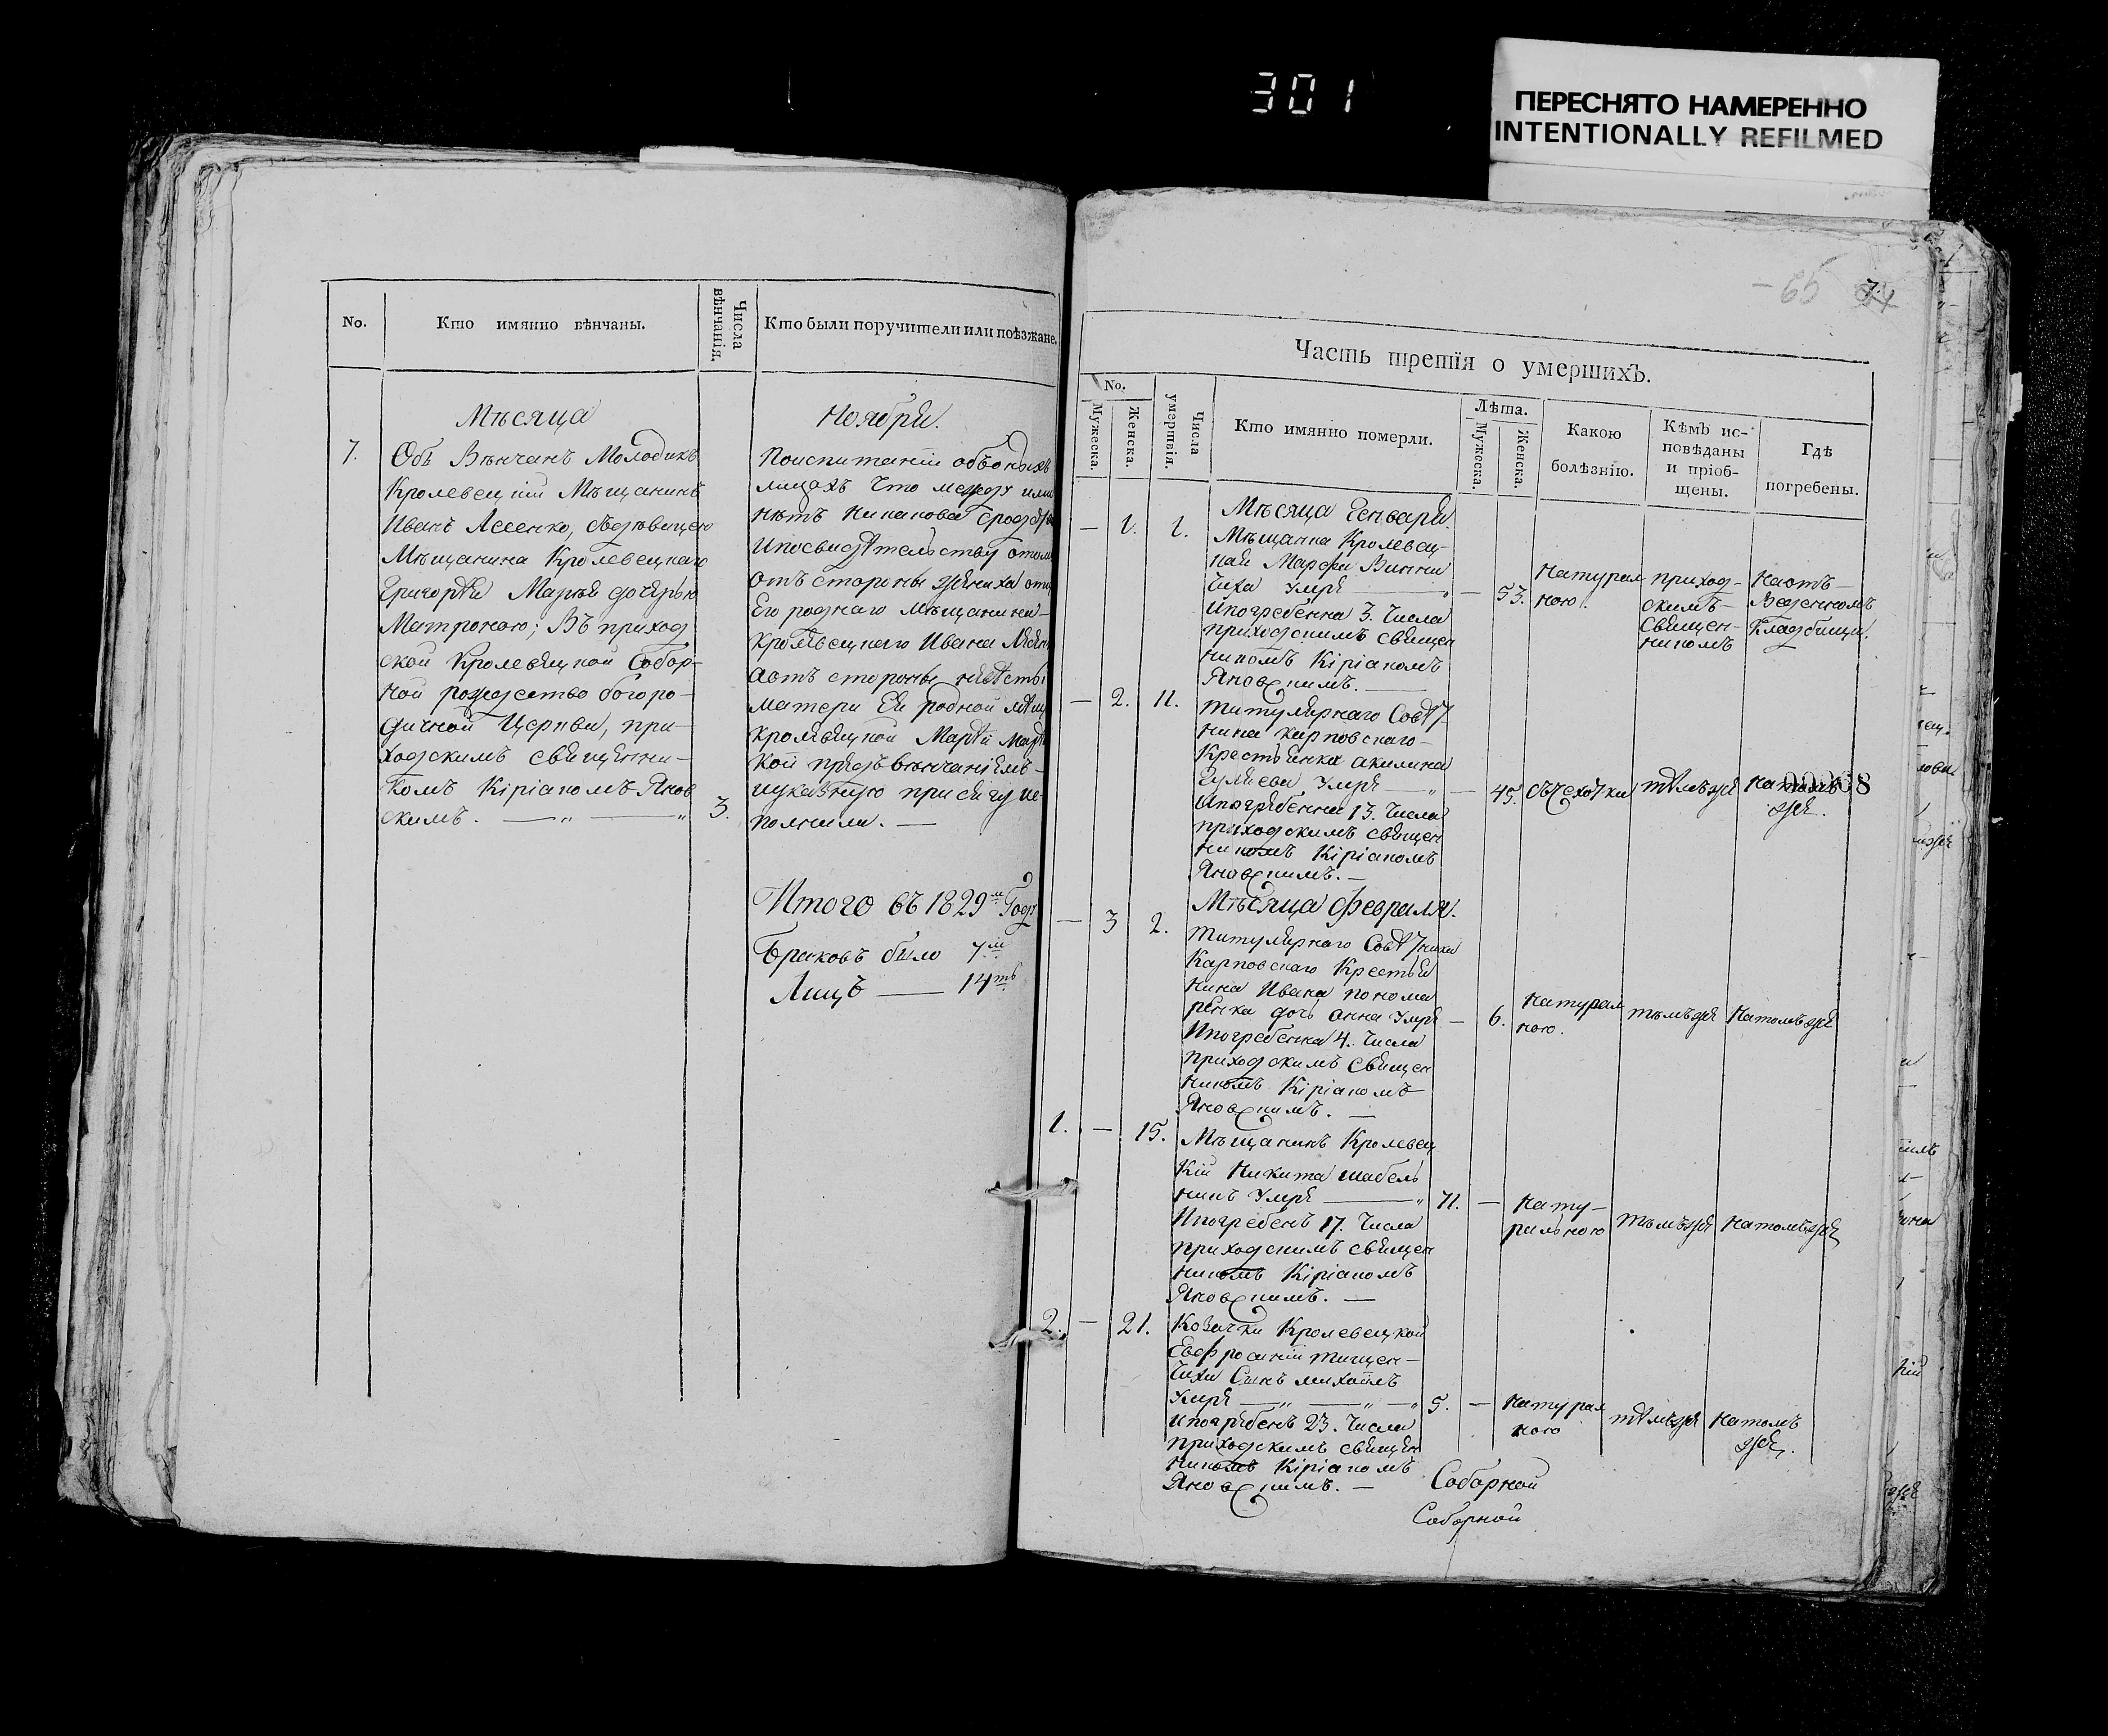 301
ПЕРЕСНЯТО НАМЕРЕННО
INTENTIONALLY REFILMED
No.
Кто имянно вѣнчаны.
Числа вѣнчанія.
Кто были поручители или поѣзжане.
Мѣсяца
Ноября.
7.
Объ Вѣнчанъ Молодикъ
Кролевецкій Мѣщанинъ
Иванъ Лесенко, сѣдѣвицею
Мѣщанина Кролевецкаго
Григорѣя дочерью
Матроною; Въ приход
ской Кролевецкой Собор-
ной рождество богоро-
дичной Церкви, при-
ходскимъ священни-
комъ Кіріакомъ Янов
скимъ.
3.
Поиспитаніи обѣоныхъ
лицахъ что между ими
нѣтъ никакова сродства
Ипосвидѣтельству отом
отъ стороны жениха отца
Его роднаго мѣщанина
кролевецкаго Ивана
аотъ стороны невѣсты
матери Ея родной мѣщ
кролевецкой
кой предъ вѣнчаніемъ
указную присягу ис-
полнили.
Итого въ 1829м Годѣ
Браковъ было 7м
Лицъ — 14ть
-65
Часть третія о умершихъ.
No.
Мужеска.
Женска.
Числа умертвія.
Кто имянно померли.
Лѣта.
Мужеска.
Женска.
Какою болѣзнію.
Кѣмъ ис-
повѣданы
и пріоб-
щены.
Гдѣ
погребены.
Мѣсяца Генваря.
— 1. 1.
Мѣщанка Кролевец-
кая Марфа Винни
чиха Умре — 53.
Ипогребенна 3. Числа
приходскимъ священ
никомъ Кіріакомъ
Яновскимъ.
натурал
ною.
приход-
скимъ
священ-
никомъ
наотъ-
веденномъ
Кладбищи.
— 2. 11.
титулярнаго Совѣт
ника карповскаго
Крестьянка акилина
Гуляева Умре — 45.
Ипогребенна 13. Числа
приходскимъ священ
никомъ Кіріакомъ
Яновскимъ.
тѣмъже
натомъ
же.
00268
Мѣсяца февраля.
— 3 2.
титулярнаго Совѣтника
Карповскаго Крестья
нина Ивана понома
ренка дочь анна Умре — 6.
Ипогребенна 4. Числа
приходскимъ священ
никомъ Кіріакомъ
Яновскимъ.
натурал
ною.
тѣмъже
натомъже
1. — 15.
Мѣщанинъ Кролевец
кій Никита шабель
никъ Умре 71. —
Ипогребенъ 17. Числа
приходскимъ священ
никомъ Кіріакомъ
Яновскимъ.
нату-
ральною
тѣмъже
натомъже
2. — 21.
Козачки Кролевецкой
Евфросиніи тищен-
чихи Сынъ михаилъ
Умре 5. —
ипогребенъ 23. Числа
приходскимъ священ
никомъ Кіріакомъ
Яновскимъ.
натурал
ною
тѣмъже
натомъ
же.
Соборной
Соборной